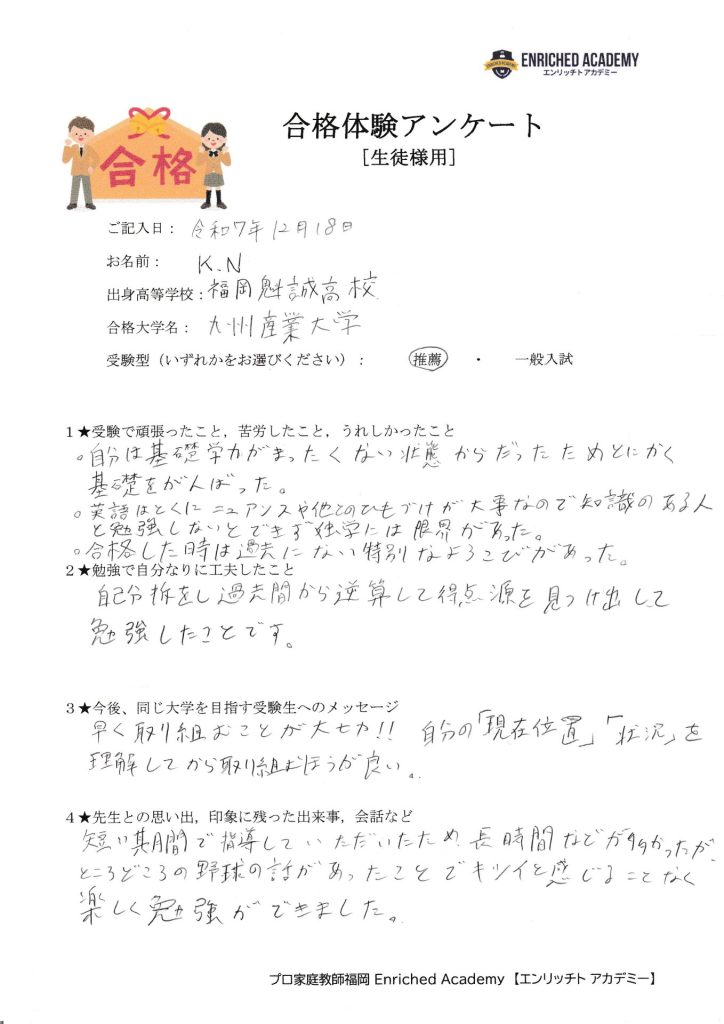 ENRICHED ACADEMY
エンリッチト アカデミー
合格
合格体験アンケート
[生徒様用]
ご記入日： 令和7年12月18日
お名前： K.N
出身高等学校：福岡魁誠高校
合格大学名： 九州産業大学
受験型（いずれかをお選びください）： 推薦 ・ 一般入試
1★受験で頑張ったこと，苦労したこと，うれしかったこと
。自分は基礎学力がまったくない状態からだったためとにかく
基礎をがんばった。
。英語はとくにニュアンスや他とのひもづけが大事なので知識のある人
と勉強しないとできず独学には限界があった。
。合格した時は過去にない特別なよろこびがあった。
2★勉強で自分なりに工夫したこと
自己分析をし過去問から逆算して得点源を見つけ出して
勉強したことです。
3★今後、同じ大学を目指す受験生へのメッセージ
早く取り組むことが大切!! 自分の「現在位置」「状況」を
理解してから取り組むほうが良い。
4★先生との思い出，印象に残った出来事，会話など
短い期間で指導していただいたため長時間などが多かったが、
ところどころの野球の話があったことでキツイと感じることなく
楽しく勉強ができました。
プロ家庭教師福岡 Enriched Academy 【エンリッチト アカデミー】